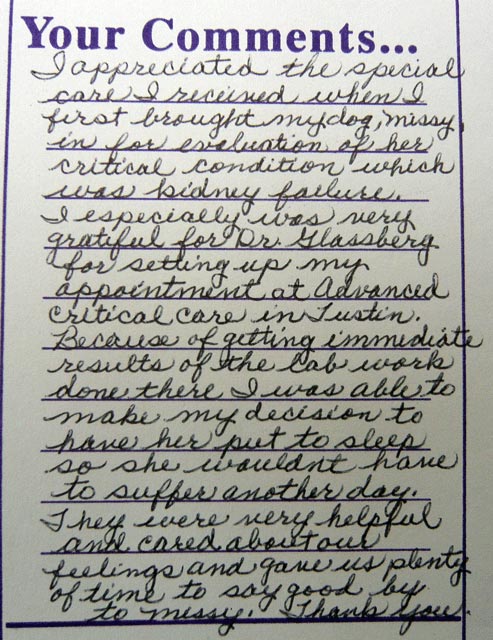 Your Comments...
I appreciated the special
care I received when I
first brought my dog, missy,
in for evaluation of her
critical condition which
was kidney failure.
I especially was very
grateful for Dr. Glassberg
for setting up my
appointment at Advanced
critical care in Tustin.
Because of getting immediate
results of the lab work
done there I was able to
make my decision to
have her put to sleep
so she wouldnt have
to suffer another day.
They were very helpful
and cared about our
feelings and gave us plenty
of time to say good by
to missy. Thank you.